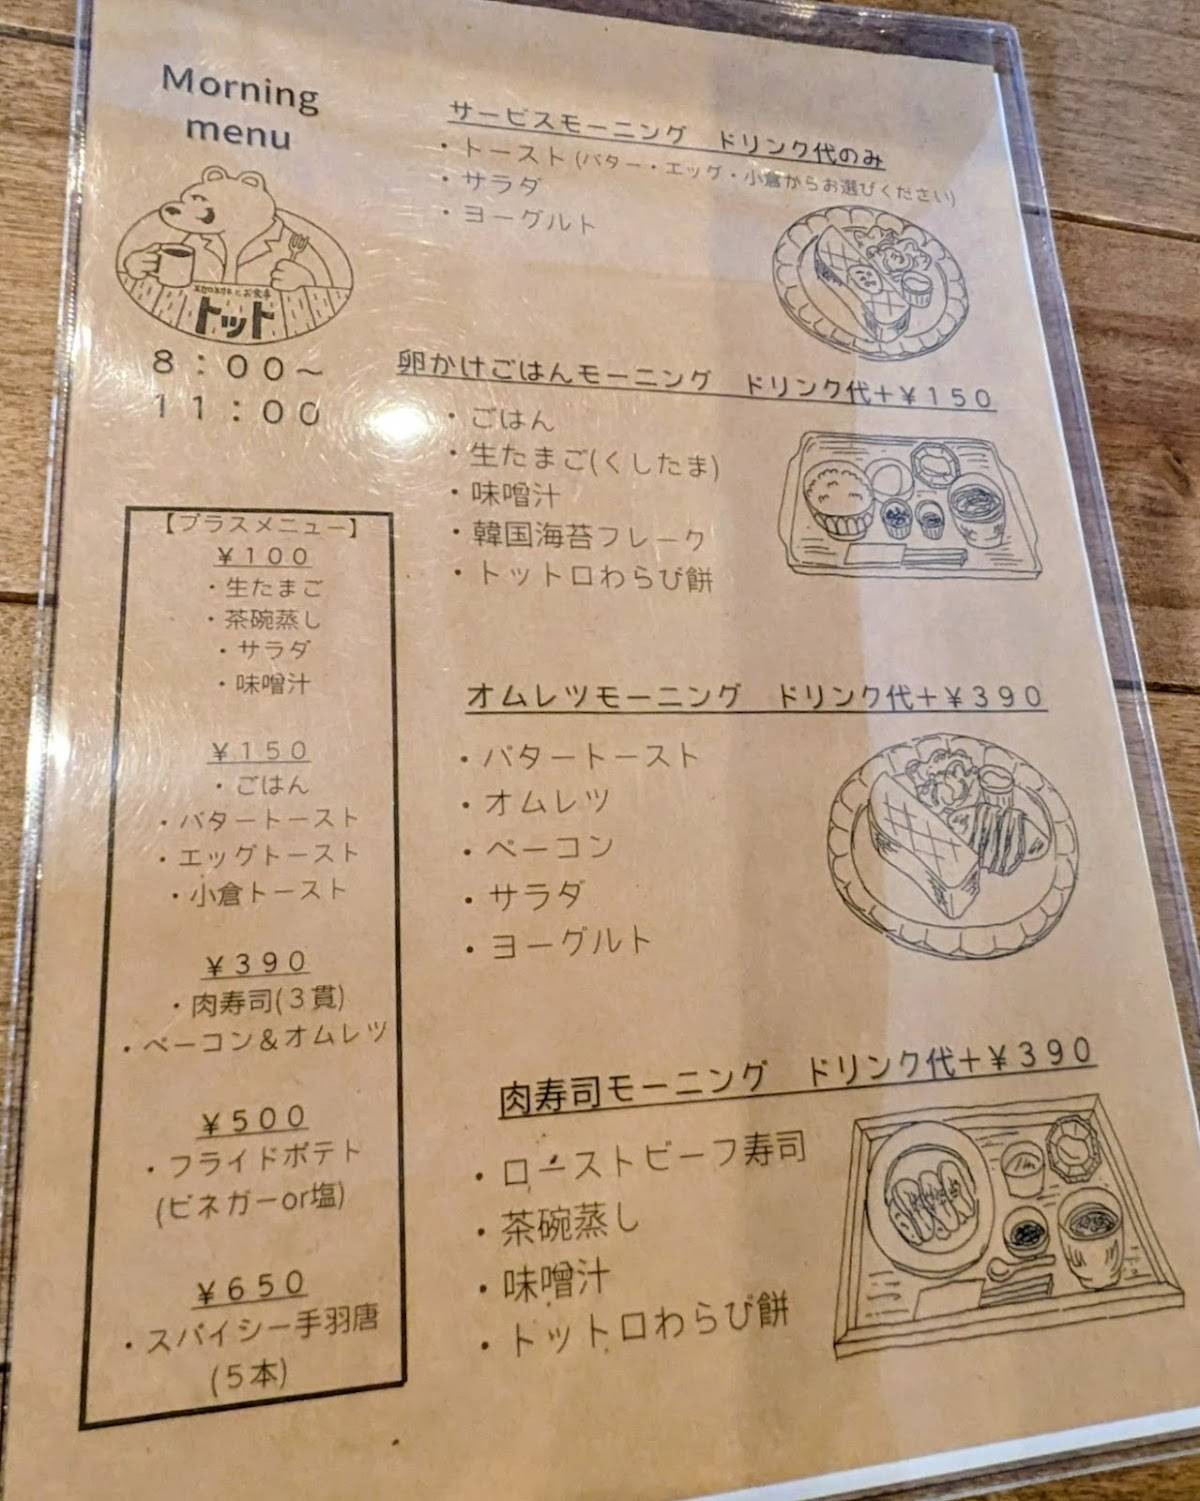 Morning
menu
トット
8:00～
11:00
サービスモーニング　ドリンク代のみ
・トースト(バター・エッグ・小倉からお選びください)
・サラダ
・ヨーグルト
卵かけごはんモーニング　ドリンク代＋￥150
・ごはん
・生たまご(くしたま)
・味噌汁
・韓国海苔フレーク
・トットロわらび餅
オムレツモーニング　ドリンク代＋￥390
・バタートースト
・オムレツ
・ベーコン
・サラダ
・ヨーグルト
肉寿司モーニング　ドリンク代＋￥390
・ローストビーフ寿司
・茶碗蒸し
・味噌汁
・トットロわらび餅
【プラスメニュー】
￥100
・生たまご
・茶碗蒸し
・サラダ
・味噌汁
￥150
・ごはん
・バタートースト
・エッグトースト
・小倉トースト
￥390
・肉寿司(3貫)
・ベーコン＆オムレツ
￥500
・フライドポテト
(ビネガーor塩)
￥650
・スパイシー手羽唐
(5本)